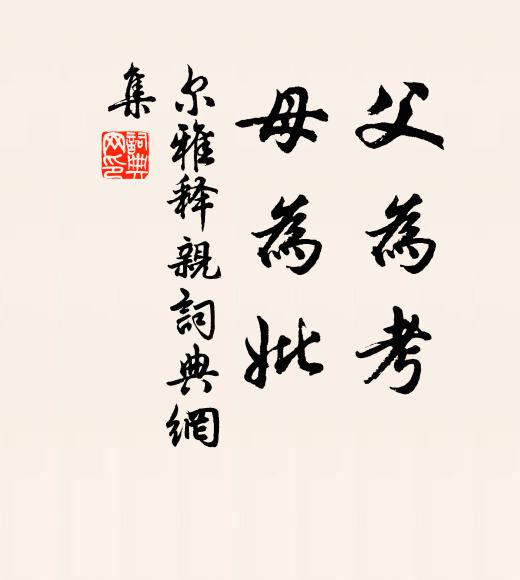 父為考
母為妣
尔雅释親詞典網
集
詞典网印